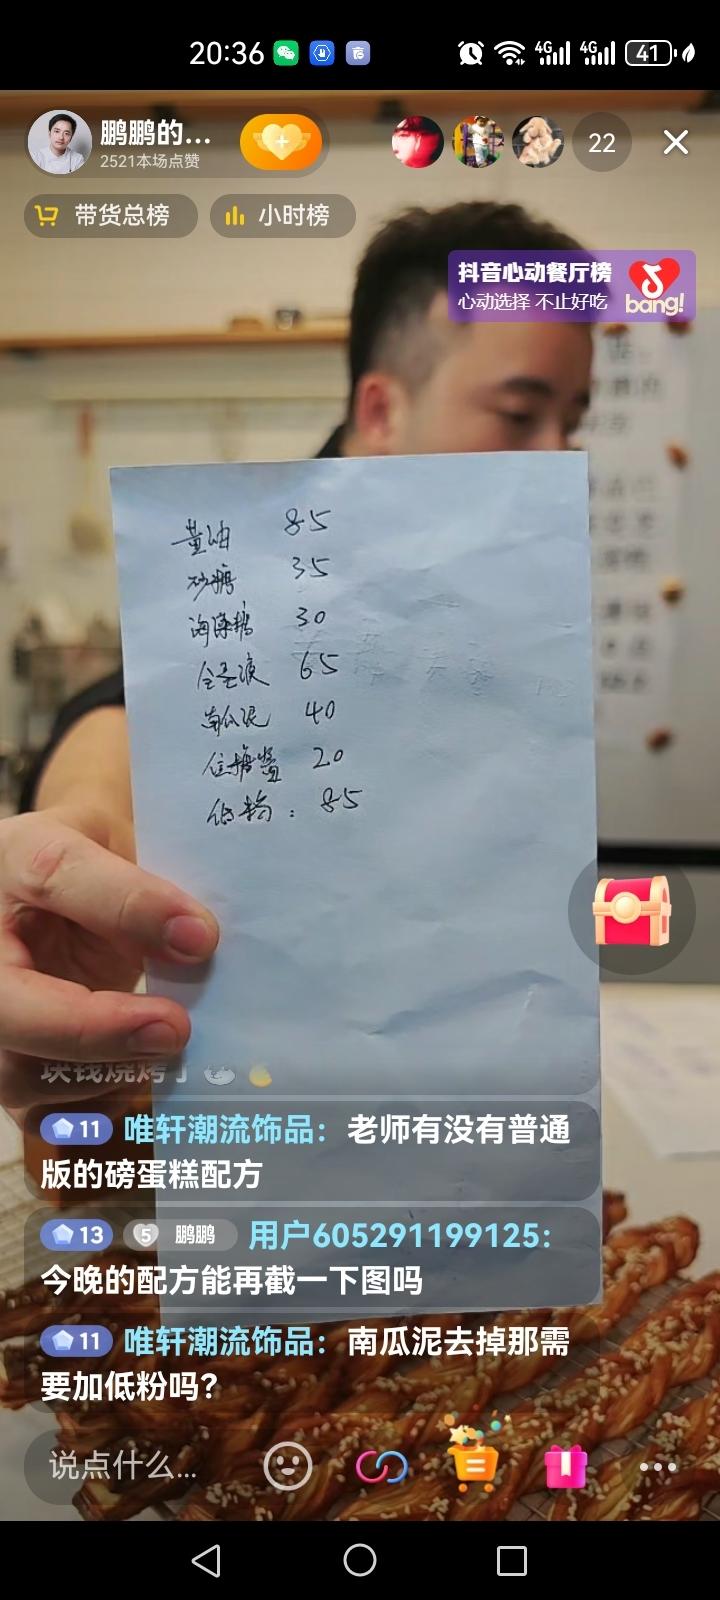 20:36
4G
4G
41
鹏鹏的...
2521本场点赞
22
带货总榜
小时榜
抖音心动餐厅榜
心动选择 不止好吃
bang!
黄油 85
砂糖 35
海藻糖 30
全蛋液 65
南瓜泥 40
転糖酱 20
低粉：85
块钱烧烤了
11 唯轩潮流饰品：老师有没有普通
版的磅蛋糕配方
13 5 鹏鹏 用户605291199125：
今晚的配方能再截一下图吗
11 唯轩潮流饰品：南瓜泥去掉那需
要加低粉吗？
说点什么...